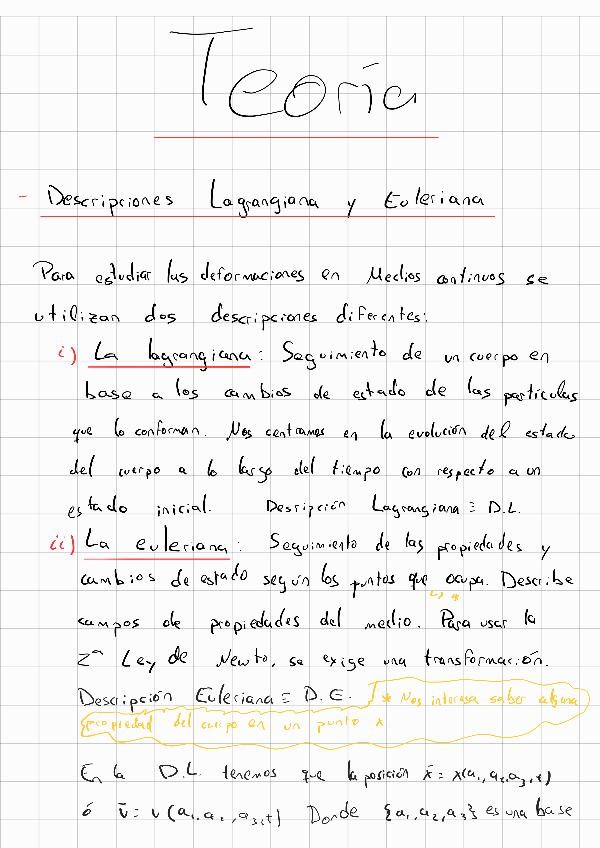 Teoría
- Descripciones Lagrangiana y Euleriana
Para estudiar las deformaciones en Medios continuos se
utilizan dos descripciones diferentes:
i) La lagrangiana: Seguimiento de un cuerpo en
base a los cambios de estado de las partículas
que lo conforman. Nos centramos en la evolución del estado
del cuerpo a lo largo del tiempo con respecto a un
estado inicial. Descripción Lagrangiana ≡ D.L.
ii) La euleriana: Seguimiento de las propiedades y
cambios de estado según los puntos que ocupa. Describe
↳ *
campos de propiedades del medio. Para usar la
2ª Ley de Newto, se exige una transformación.
Descripción Euleriana ≡ D.E. * Nos interesa saber alguna
propiedad del cuerpo en un punto x
En la D.L. tenemos que la posición x̄ = x(a₁,a₂,a₃,t)
ó v̄ = v(a₁,a₂,a₃,t) Donde {a₁,a₂,a₃} es una base